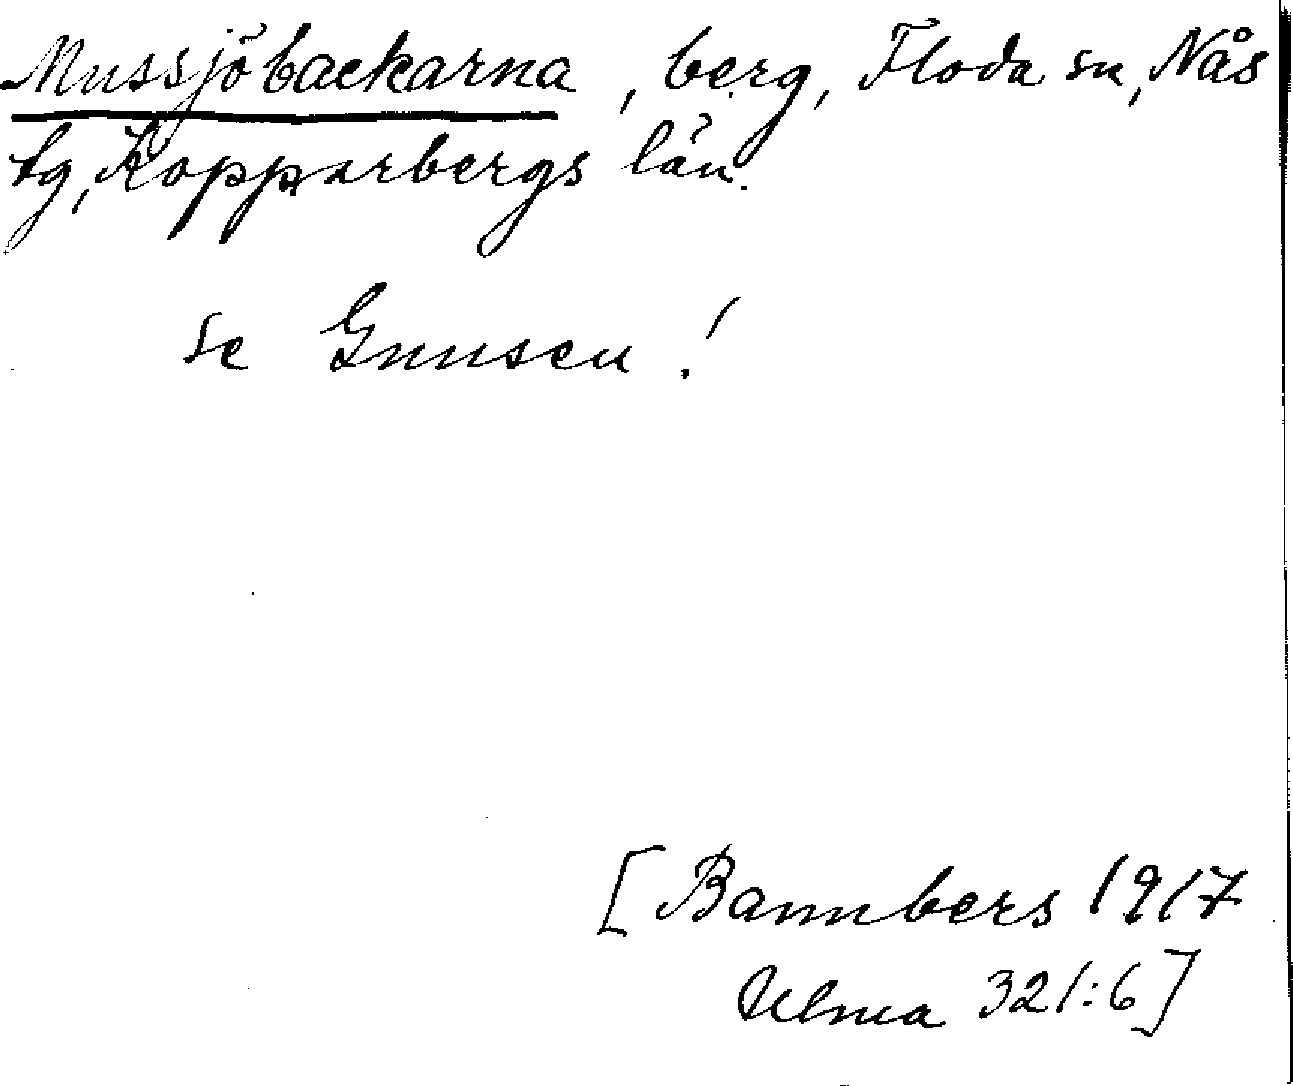 Mussjöbackarna, berg, Floda sn, Nås
tg, Kopparbergs län.
se Gnusen!
[Bannbers 1917
Ulma 321:6]